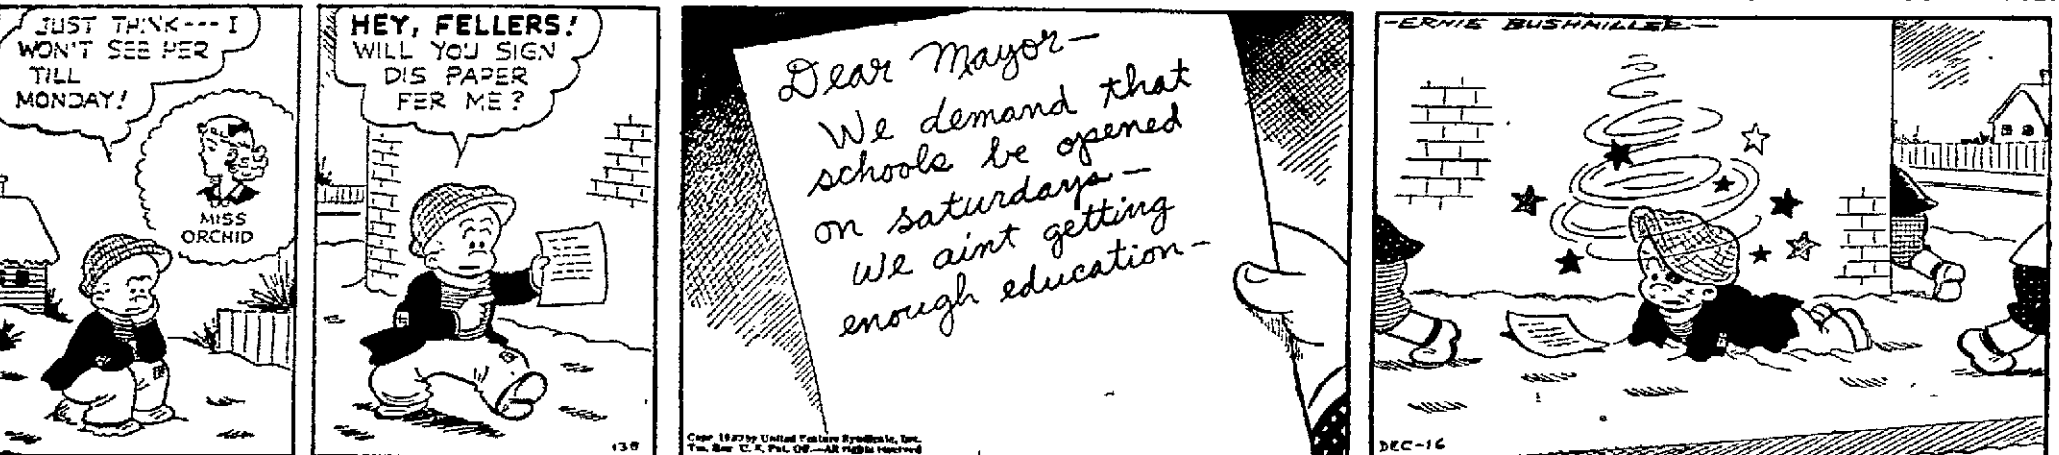 JUST THINK --- I
WON'T SEE HER
TILL
MONDAY!
MISS
ORCHID
HEY, FELLERS!
WILL YOU SIGN
DIS PAPER
FER ME?
138
Dear Mayor—
We demand that
schools be opened
on saturdays—
We aint getting
enough education—
Copr. by United Feature Syndicate, Inc.
Tm. Reg. U. S. Pat. Off.—All rights reserved
-ERNIE BUSHMILLER-
DEC-16